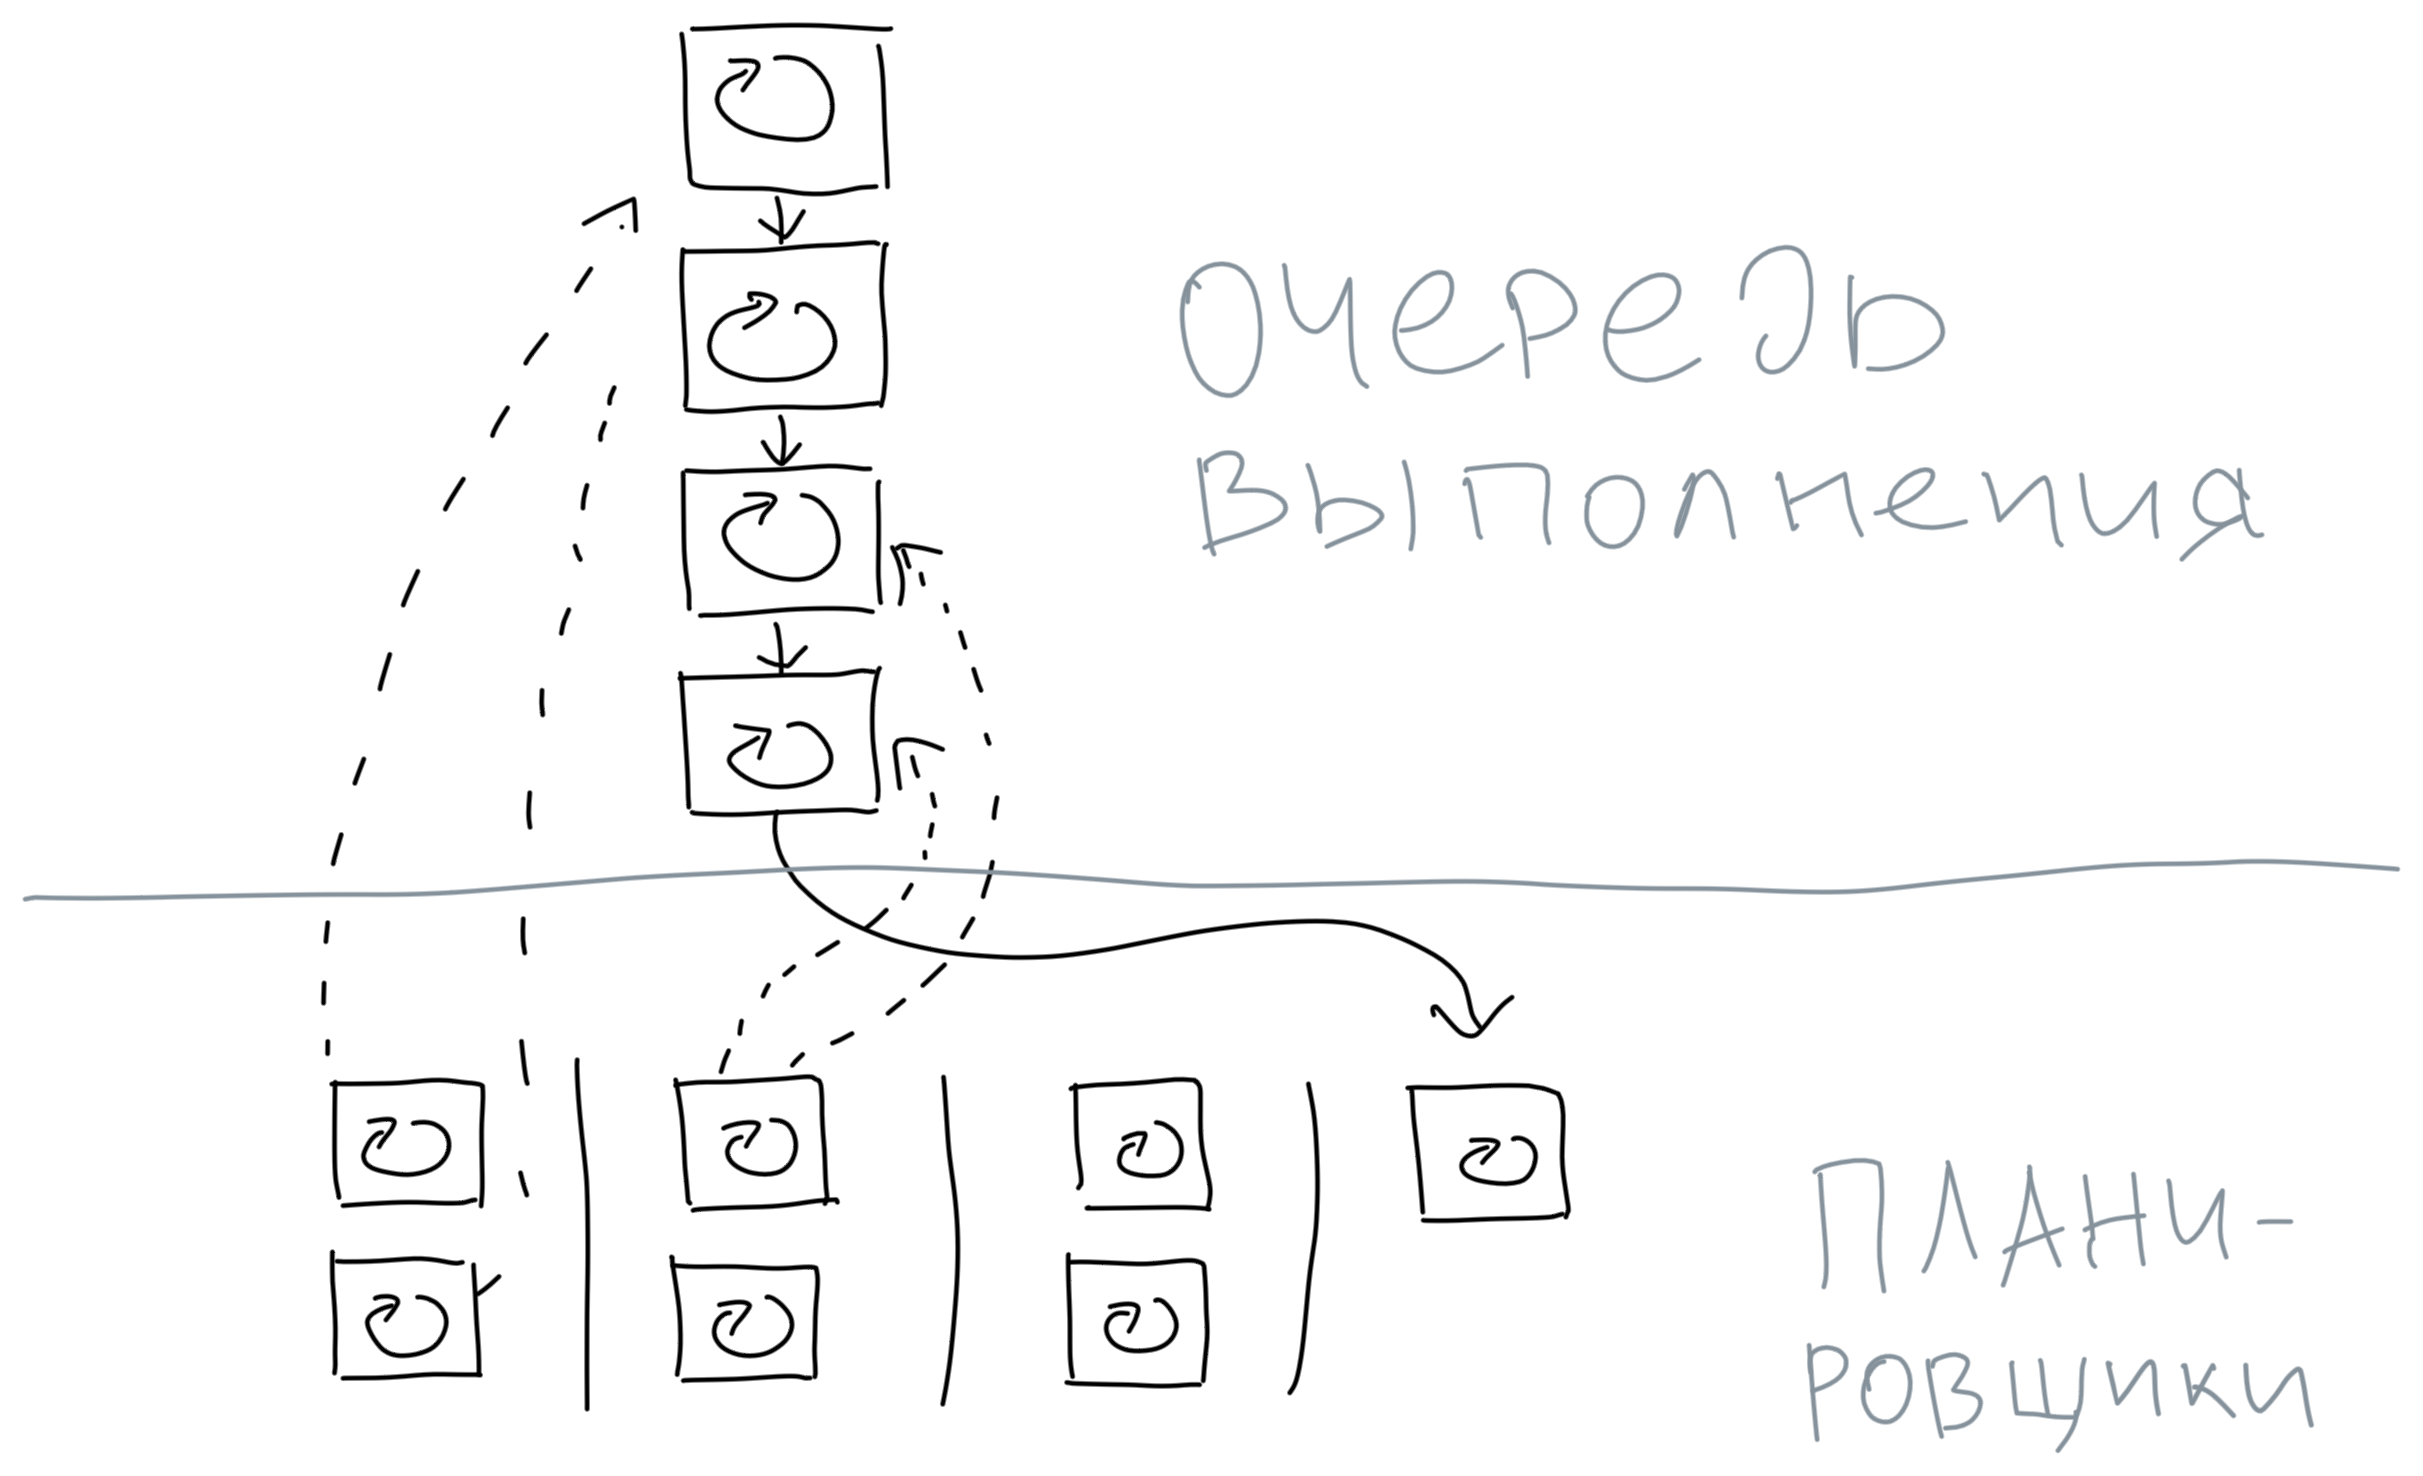 очередь
выполнения
ПЛАНИ-
РОВЩИКИ